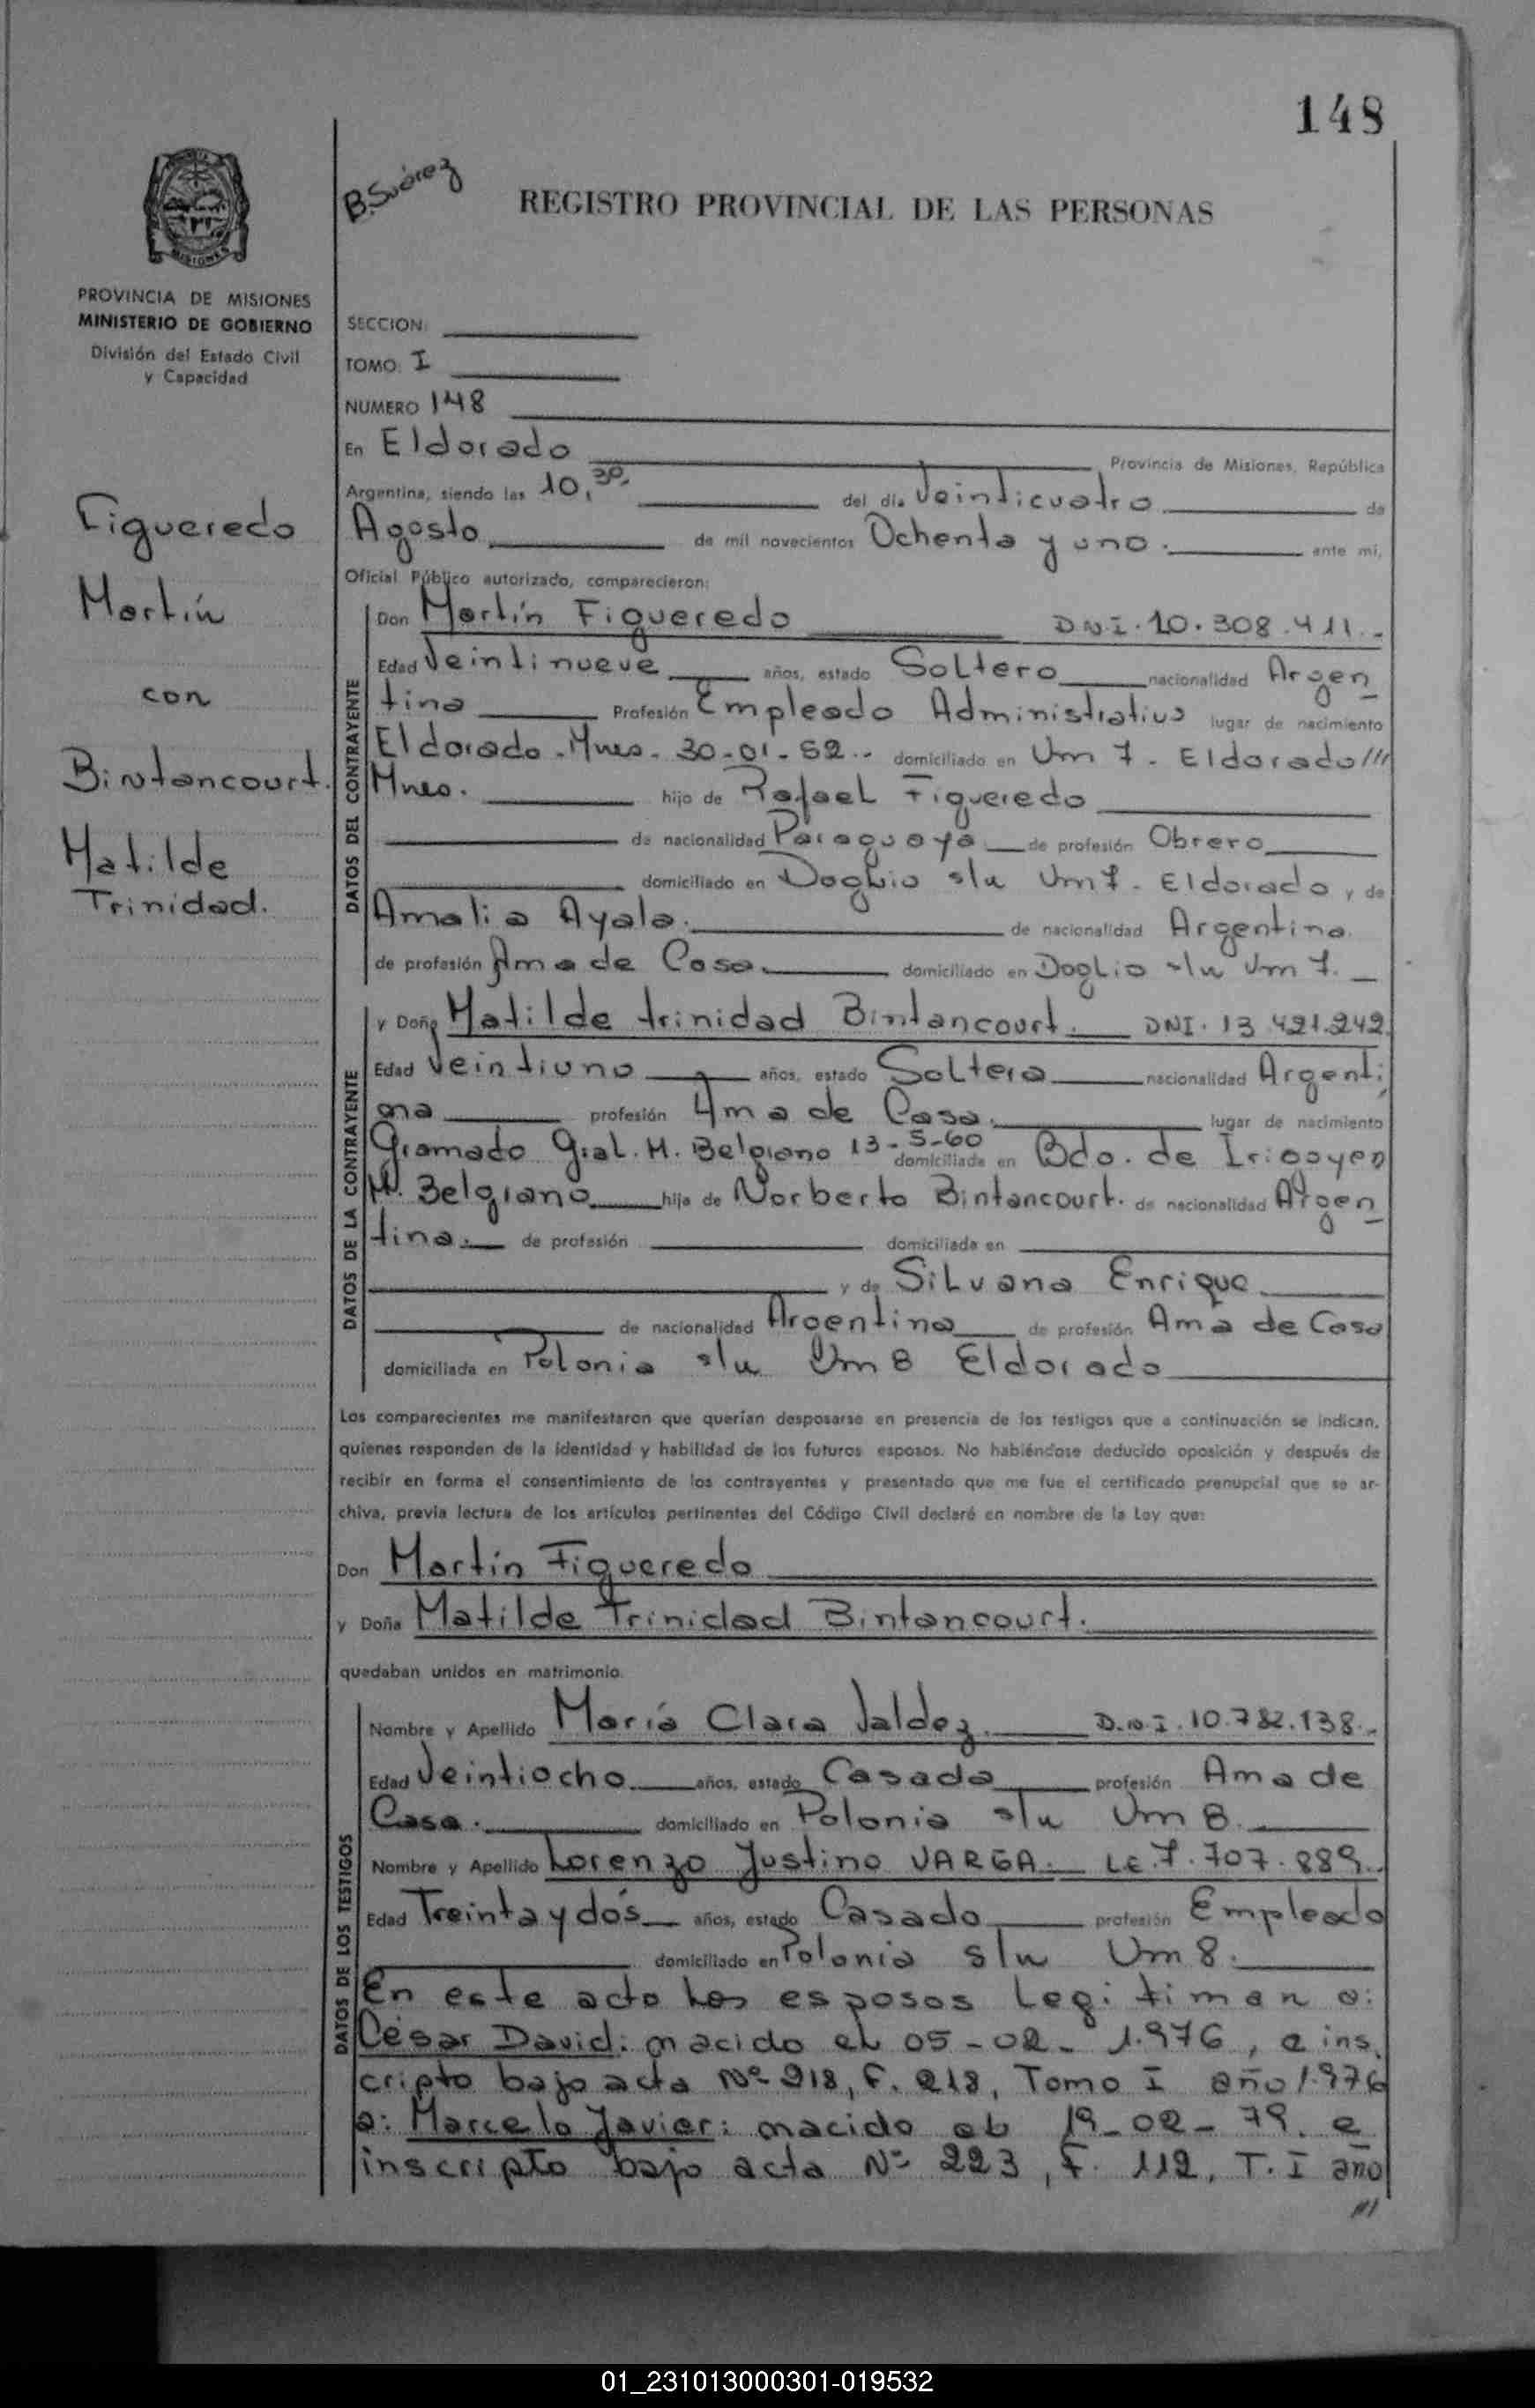 148
B. Suárez
REGISTRO PROVINCIAL DE LAS PERSONAS
MISIONES
PROVINCIA DE MISIONES
MINISTERIO DE GOBIERNO
División del Estado Civil
y Capacidad
SECCION:
TOMO: I
NUMERO 148
En Eldorado Provincia de Misiones, República
Argentina, siendo las 10,30 del día Veinticuatro de
Agosto de mil novecientos Ochenta y uno. ante mí,
Oficial Público autorizado, comparecieron:
Figueredo
Martín
con
Bintancourt.
Matilde
Trinidad.
DATOS DEL CONTRAYENTE
Don Martín Figueredo D.N.I. 10.308.411.-
Edad Veintinueve años, estado Soltero nacionalidad Argen
tina Profesión Empleado Administrativo lugar de nacimiento
Eldorado - Mnes. 30-01-52.- domiciliado en Um 7 - Eldorado///
Mnes. hijo de Rafael Figueredo
de nacionalidad Paraguaya de profesión Obrero
domiciliado en Doglio s/n Um 7 - Eldorado y de
Amalia Ayala. de nacionalidad Argentina.
de profesión Ama de Casa. domiciliado en Doglio s/n Um 7.
DATOS DE LA CONTRAYENTE
y Doña Matilde trinidad Bintancourt. DNI. 13.421.242.
Edad Veintiuno años, estado Soltera nacionalidad Argenti
na profesión Ama de Casa. lugar de nacimiento
Gramado Gral. M. Belgrano 13-5-60 domiciliada en Bdo. de Irigoyen
M. Belgrano hija de Norberto Bintancourt. de nacionalidad Argen
tina. de profesión domiciliada en
y de Silvana Enrique
de nacionalidad Argentina de profesión Ama de Casa
domiciliada en Polonia s/n Um 8 Eldorado
Los comparecientes me manifestaron que querían desposarse en presencia de los testigos que a continuación se indican,
quienes responden de la identidad y habilidad de los futuros esposos. No habiéndose deducido oposición y después de
recibir en forma el consentimiento de los contrayentes y presentado que me fue el certificado prenupcial que se ar-
chiva, previa lectura de los artículos pertinentes del Código Civil declaré en nombre de la Ley que:
Don Martín Figueredo
y Doña Matilde Trinidad Bintancourt.
quedaban unidos en matrimonio.
DATOS DE LOS TESTIGOS
Nombre y Apellido María Clara Valdez. D.N.I. 10.782.138.-
Edad Veintiocho años, estado Casada profesión Ama de
Casa. domiciliado en Polonia s/n Um 8.
Nombre y Apellido Lorenzo Justino VARGA. L.E. 7.707.889.
Edad Treinta y dós años, estado Casado profesión Empleado
domiciliado en Polonia s/n Um 8.
En este acto los esposos Legitiman a:
César David: nacido el 05-02-1.976, e ins.
cripto bajo acta Nº 218, F. 218, Tomo I año 1.976
a: Marcelo Javier: nacido el 19-02-79. e
inscripto bajo acta Nº 223, F. 112, T. I año
///
01_231013000301-019532